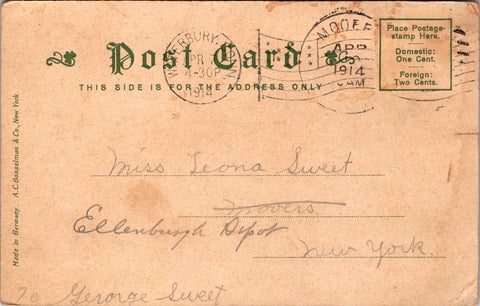 Post Card
THIS SIDE IS FOR THE ADDRESS ONLY
Place Postage-
stamp Here.
Domestic:
One Cent.
Foreign:
Two Cents.
WATERBURY, CONN
APR
4-30P
1914
MOOE
APR
1914
AM
Miss Leona Sweet
Mooers
Ellenburgh Depot
New York.
To George Sweet
Made in Germany. A.C. Bosselman & Co., New York.